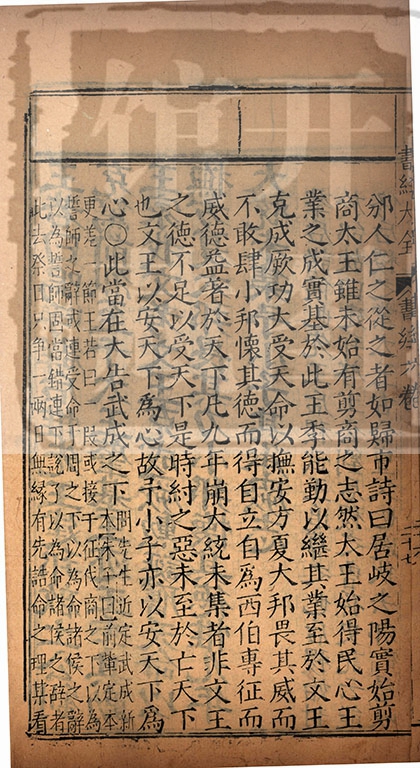 書經大全
書經六卷
二十七
邠人仁之從之者如歸市詩曰居岐之陽實始剪
商太王雖未始有剪商之志然太王始得民心王
業之成實基於此王季能勤以繼其業至於文王
克成厥功大受天命以撫安方夏大邦畏其威而
不敢肆小邦懷其德而得自立自為西伯專征而
威德益著於天下凡九年崩大統未集者非文王
之德不足以受天下是時紂之惡未至於亡天下
也文王以安天下為心故予小子亦以安天下為
心〇此當在大告武成之下
問先生近定武成新
本朱子曰前輩定本
更差一節王若曰一段或接于征伐商之下以為
誓師之辭或連受命于周之下以為命諸侯之辭
以為誓師固當錯連下說了以為命諸侯之辭者
此去祭日只争一兩日無緣有先誥命之理某看